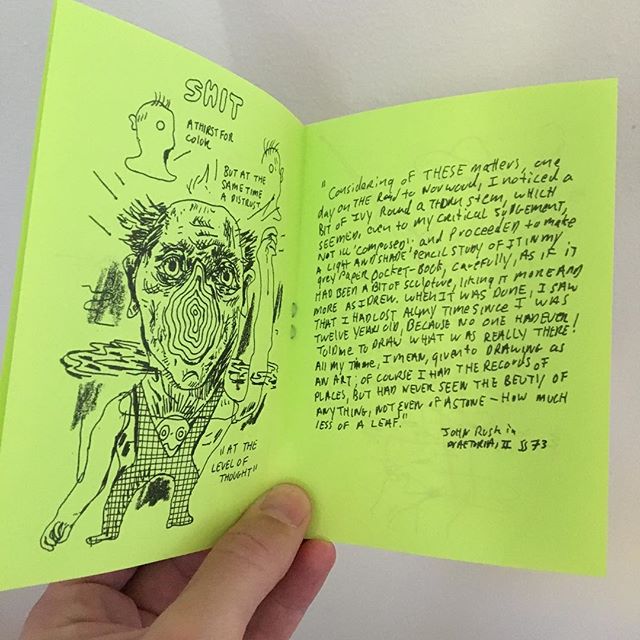 SHIT
A THIRST FOR
COLOR
BUT AT THE
SAME TIME
A DISTRUST
"AT THE
LEVEL OF
THOUGHT"
"Considering of THESE matters, one
day on the Road to Norwood, I noticed a
BIT OF IVY Round A THORN STEM, WHICH
SEEMED, even to my CRITICAL JUDGEMENT,
NOT ILL 'COMPOSED': and Proceeded to make
A LIGHT AND SHADE PENCIL STUDY OF IT IN my
grey PAPER POCKET-BOOK, CAREFULLY, AS IF IT
HAD BEEN A BIT OF SCULPTURE, LIKING IT MORE AND
MORE AS I DREW. WHEN IT WAS DONE, I SAW
THAT I HAD LOST ALL MY TIME SINCE I WAS
TWELVE YEARS OLD, BECAUSE NO ONE HAD EVER
TOLD ME TO DRAW WHAT WAS REALLY THERE!
All my Time, I MEAN, given to DRAWING AS
AN ART; OF COURSE I HAD THE RECORDS OF
PLACES, BUT HAD NEVER SEEN THE BEUTY OF
ANYTHING, NOT EVEN OF A STONE – HOW MUCH
LESS OF A LEAF."
JOHN Ruskin
II §§ 73